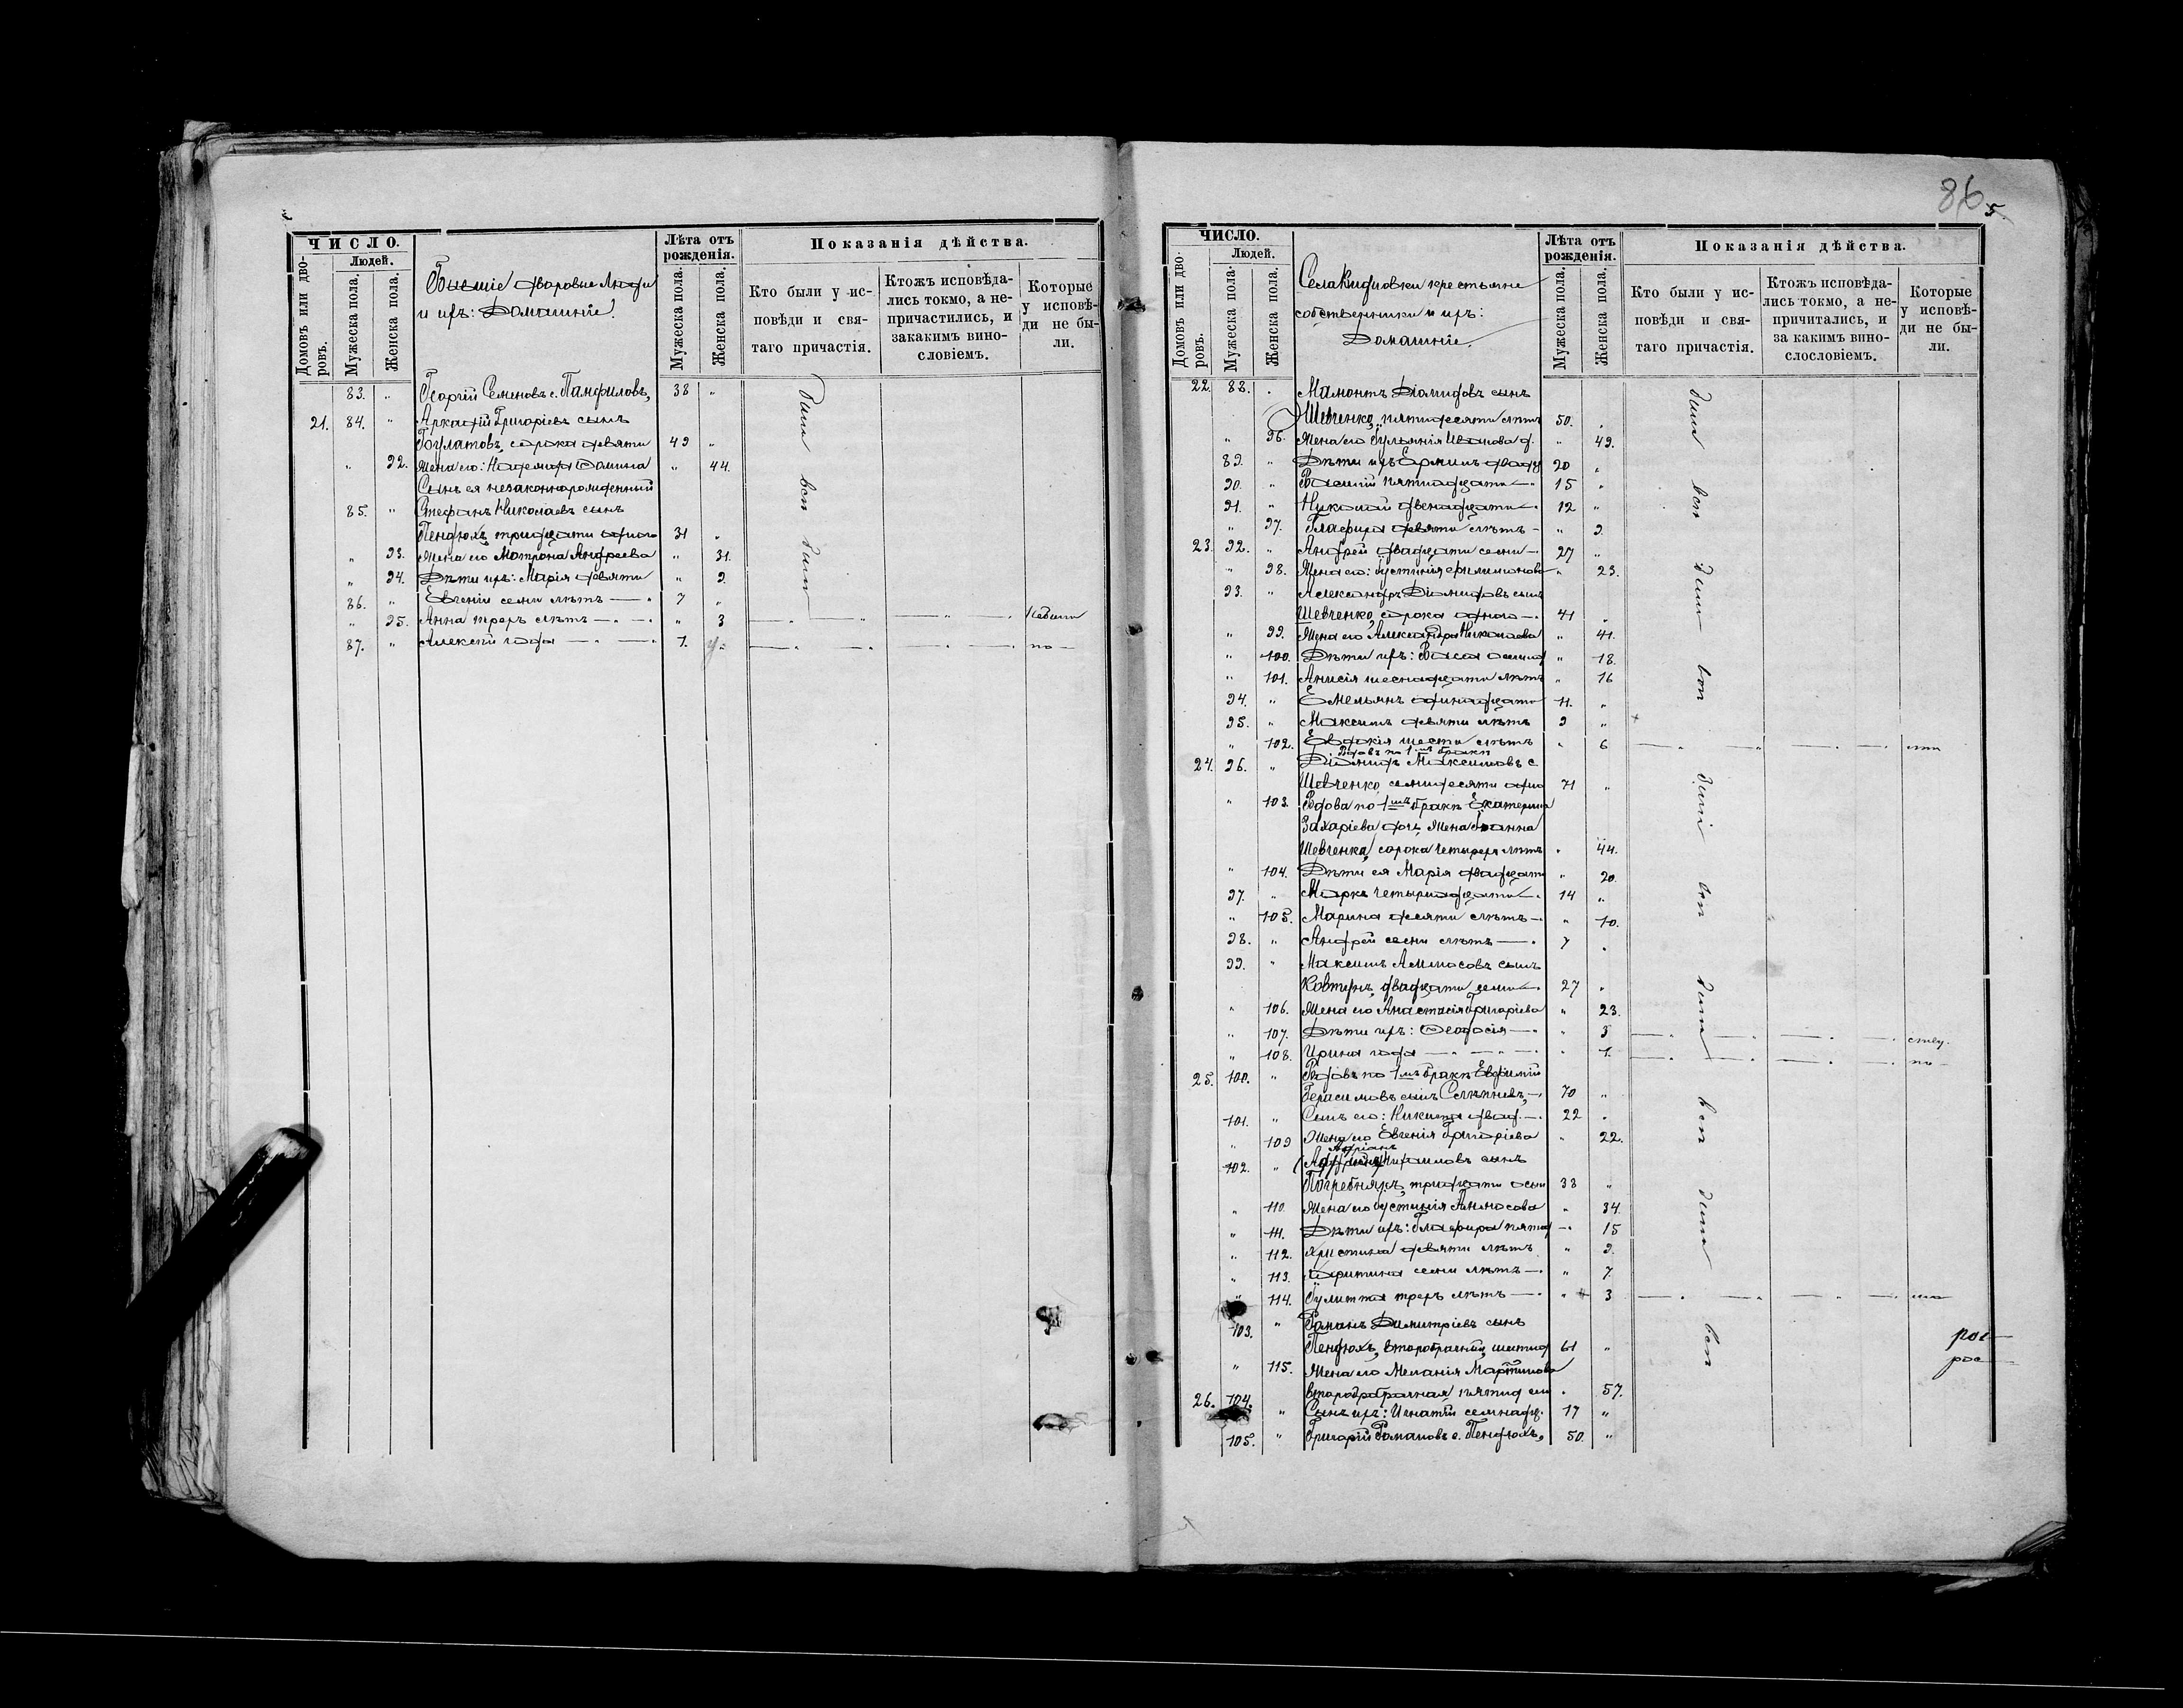 ЧИСЛО.
Людей.
Домовъ или дворовъ.
Мужеска пола.
Женска пола.
Бывшіе дворовые люди
и ихъ: Домашніе.
Лѣта отъ
рожденія.
Мужеска пола.
Женска пола.
Показанія дѣйства.
Кто были у ис-
повѣди и свя-
таго причастія.
Ктожъ исповѣда-
лись токмо, а не-
причастились, и
закакимъ вино-
словіемъ.
Которые
у исповѣ-
ди не бы-
ли.
83. " Георгій Семеновъ с. Панфиловъ, 38 "
21. 84. " Аркадій Григоріевъ сынъ
сорока девяти 49 "
" 92. Жена его: Надежда Фомина " 44.
Сынъ ея незаконнорожденный
85. " Стефанъ Николаевъ сынъ
Пендюхъ, тридцати одного 31 "
" 93. Жена его Матрона Андреева " 31.
" 94. Дѣти ихъ: Марія девяти " 9.
86. " Евгеній семи лѣтъ 7 "
" 95. Анна трехъ лѣтъ " 3 Небыли
87. " Алексѣй года 1. по
были всѣ были
86 5.
ЧИСЛО.
Людей.
Домовъ или дворовъ.
Мужеска пола.
Женска пола.
Села крестьяне
собственники и ихъ:
Домашніе.
Лѣта отъ
рожденія.
Мужеска пола.
Женска пола.
Показанія дѣйства.
Кто были у ис-
повѣди и свя-
таго причастія.
Ктожъ исповѣда-
лись токмо, а не-
причитались, и
за какимъ вино-
слословіемъ.
Которые
у исповѣ-
ди не бы-
ли.
22. 88. " Мамонтъ Діомидовъ сынъ
Шевченко, пятидесяти лѣтъ 50. "
" 96. Жена его Іульянія Иванова д. " 49.
89. " Дѣти ихъ Ермилъ двад 20 "
90. " Василій пятнадцати 15 "
91. " Николай двенадцати 12 "
" 97. Глафира девяти лѣтъ " 9.
23. 92. " Андрей двадцати семи 27 "
" 98. Жена его: Іустинія Филимонова " 23.
93. " Александръ Діомидовъ сынъ
Шевченко, сорока одного 41 "
" 99. Жена его Александра Николаева " 41.
" 100. Дѣти ихъ: Васса осмнад " 18.
" 101. Анисія шеснадцати лѣтъ " 16
94. " Емельянъ одинадцати 11. "
95. " Максимъ девяти лѣтъ 9 "
" 102. Евдокія шести лѣтъ " 6
Вдовъ по 1мъ бракѣ
24. 96. " Діомидъ Максимовъ с.
Шевченко, семидесяти одно 71 "
" 103. Вдова по 1мъ бракѣ Екатерина
Захаріева дочь жена Іоанна
Шевченка, сорока четырехъ лѣтъ " 44.
" 104. Дѣти ея Марія двадцати " 20.
97. " Маркъ четырнадцати 14 "
" 105. Марина десяти лѣтъ " 10.
98. " Андрей семи лѣтъ 7 "
99. " Максимъ Аммосовъ сынъ
двадцати семи 27 "
" 106. Жена его Анастасія Григоріева " 23.
" 107. Дѣти ихъ: Феодосія " 3
" 108. Ирина года " 1. по
25. 100. " Вдовъ по 1мъ бракѣ Евфимій
Герасимовъ сынъ 70 "
101. " Сынъ его: Никита двад. 22 "
" 109 Жена его Евгенія Григоріева " 22.
Адріанъ
102. " Михаиловъ сынъ
Погребнякъ, тридцати осьм 38 "
" 110. Жена его Іустинія Аммосова " 34.
" 111. Дѣти ихъ: Глафира пятнад 15
" 112. Христина девяти лѣтъ " 9.
" 113. Харитина семи лѣтъ " 7.
" 114. Іулитта трехъ лѣтъ " 3
103. " Романъ Димитріевъ сынъ
Пендюхъ, второбрачный, шестид 61 "
" 115. Жена его Меланія Мартинова
второбрачная, пятид сем " 57.
26. 104. " Сынъ ихъ: Игнатій семнадц. 17 "
105. " Григорій Романовъ с. Пендюхъ, 50. "
были всѣ были всѣ были всѣ были всѣ были всѣ